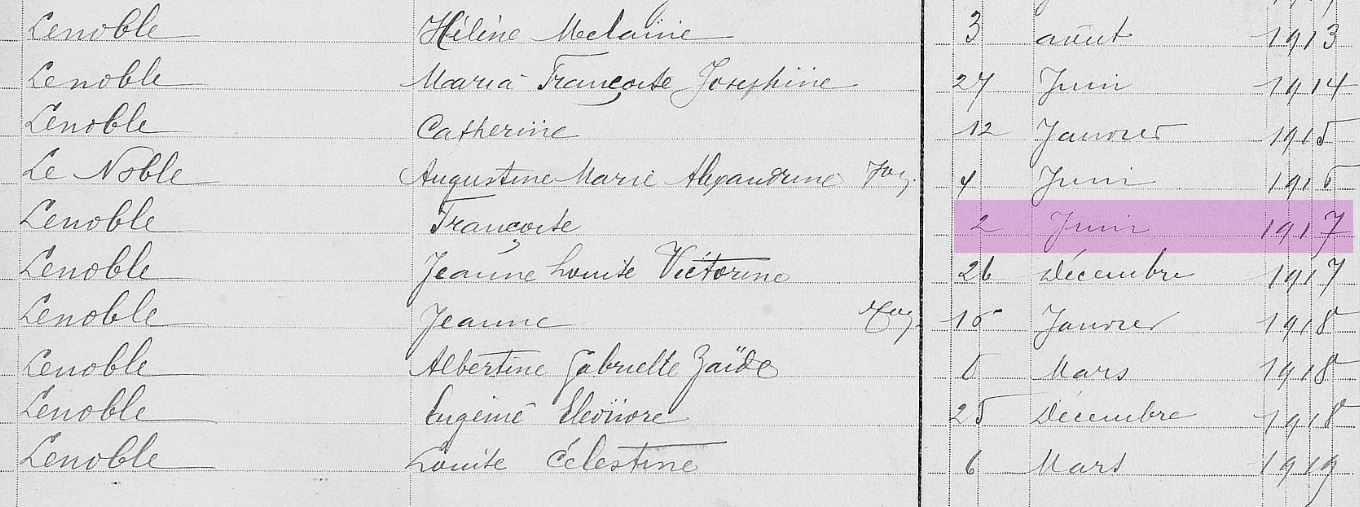 Lenoble Hélène Melanie 3 août 1913
Lenoble Maria Françoise Josephine 27 Juin 1914
Lenoble Catherine 12 Janvier 1915
Le Noble Augustine Marie Alexandrine 4 Juin 1916
Lenoble Françoise 2 Juin 1917
Lenoble Jeanne Louise Victorine 26 Décembre 1917
Lenoble Jeanne 15 Janvier 1918
Lenoble Albertine Gabrielle Zaïde Mars 1918
Lenoble Eugénie Eléonore 25 Décembre 1918
Lenoble Louise Célestine 6 Mars 1919